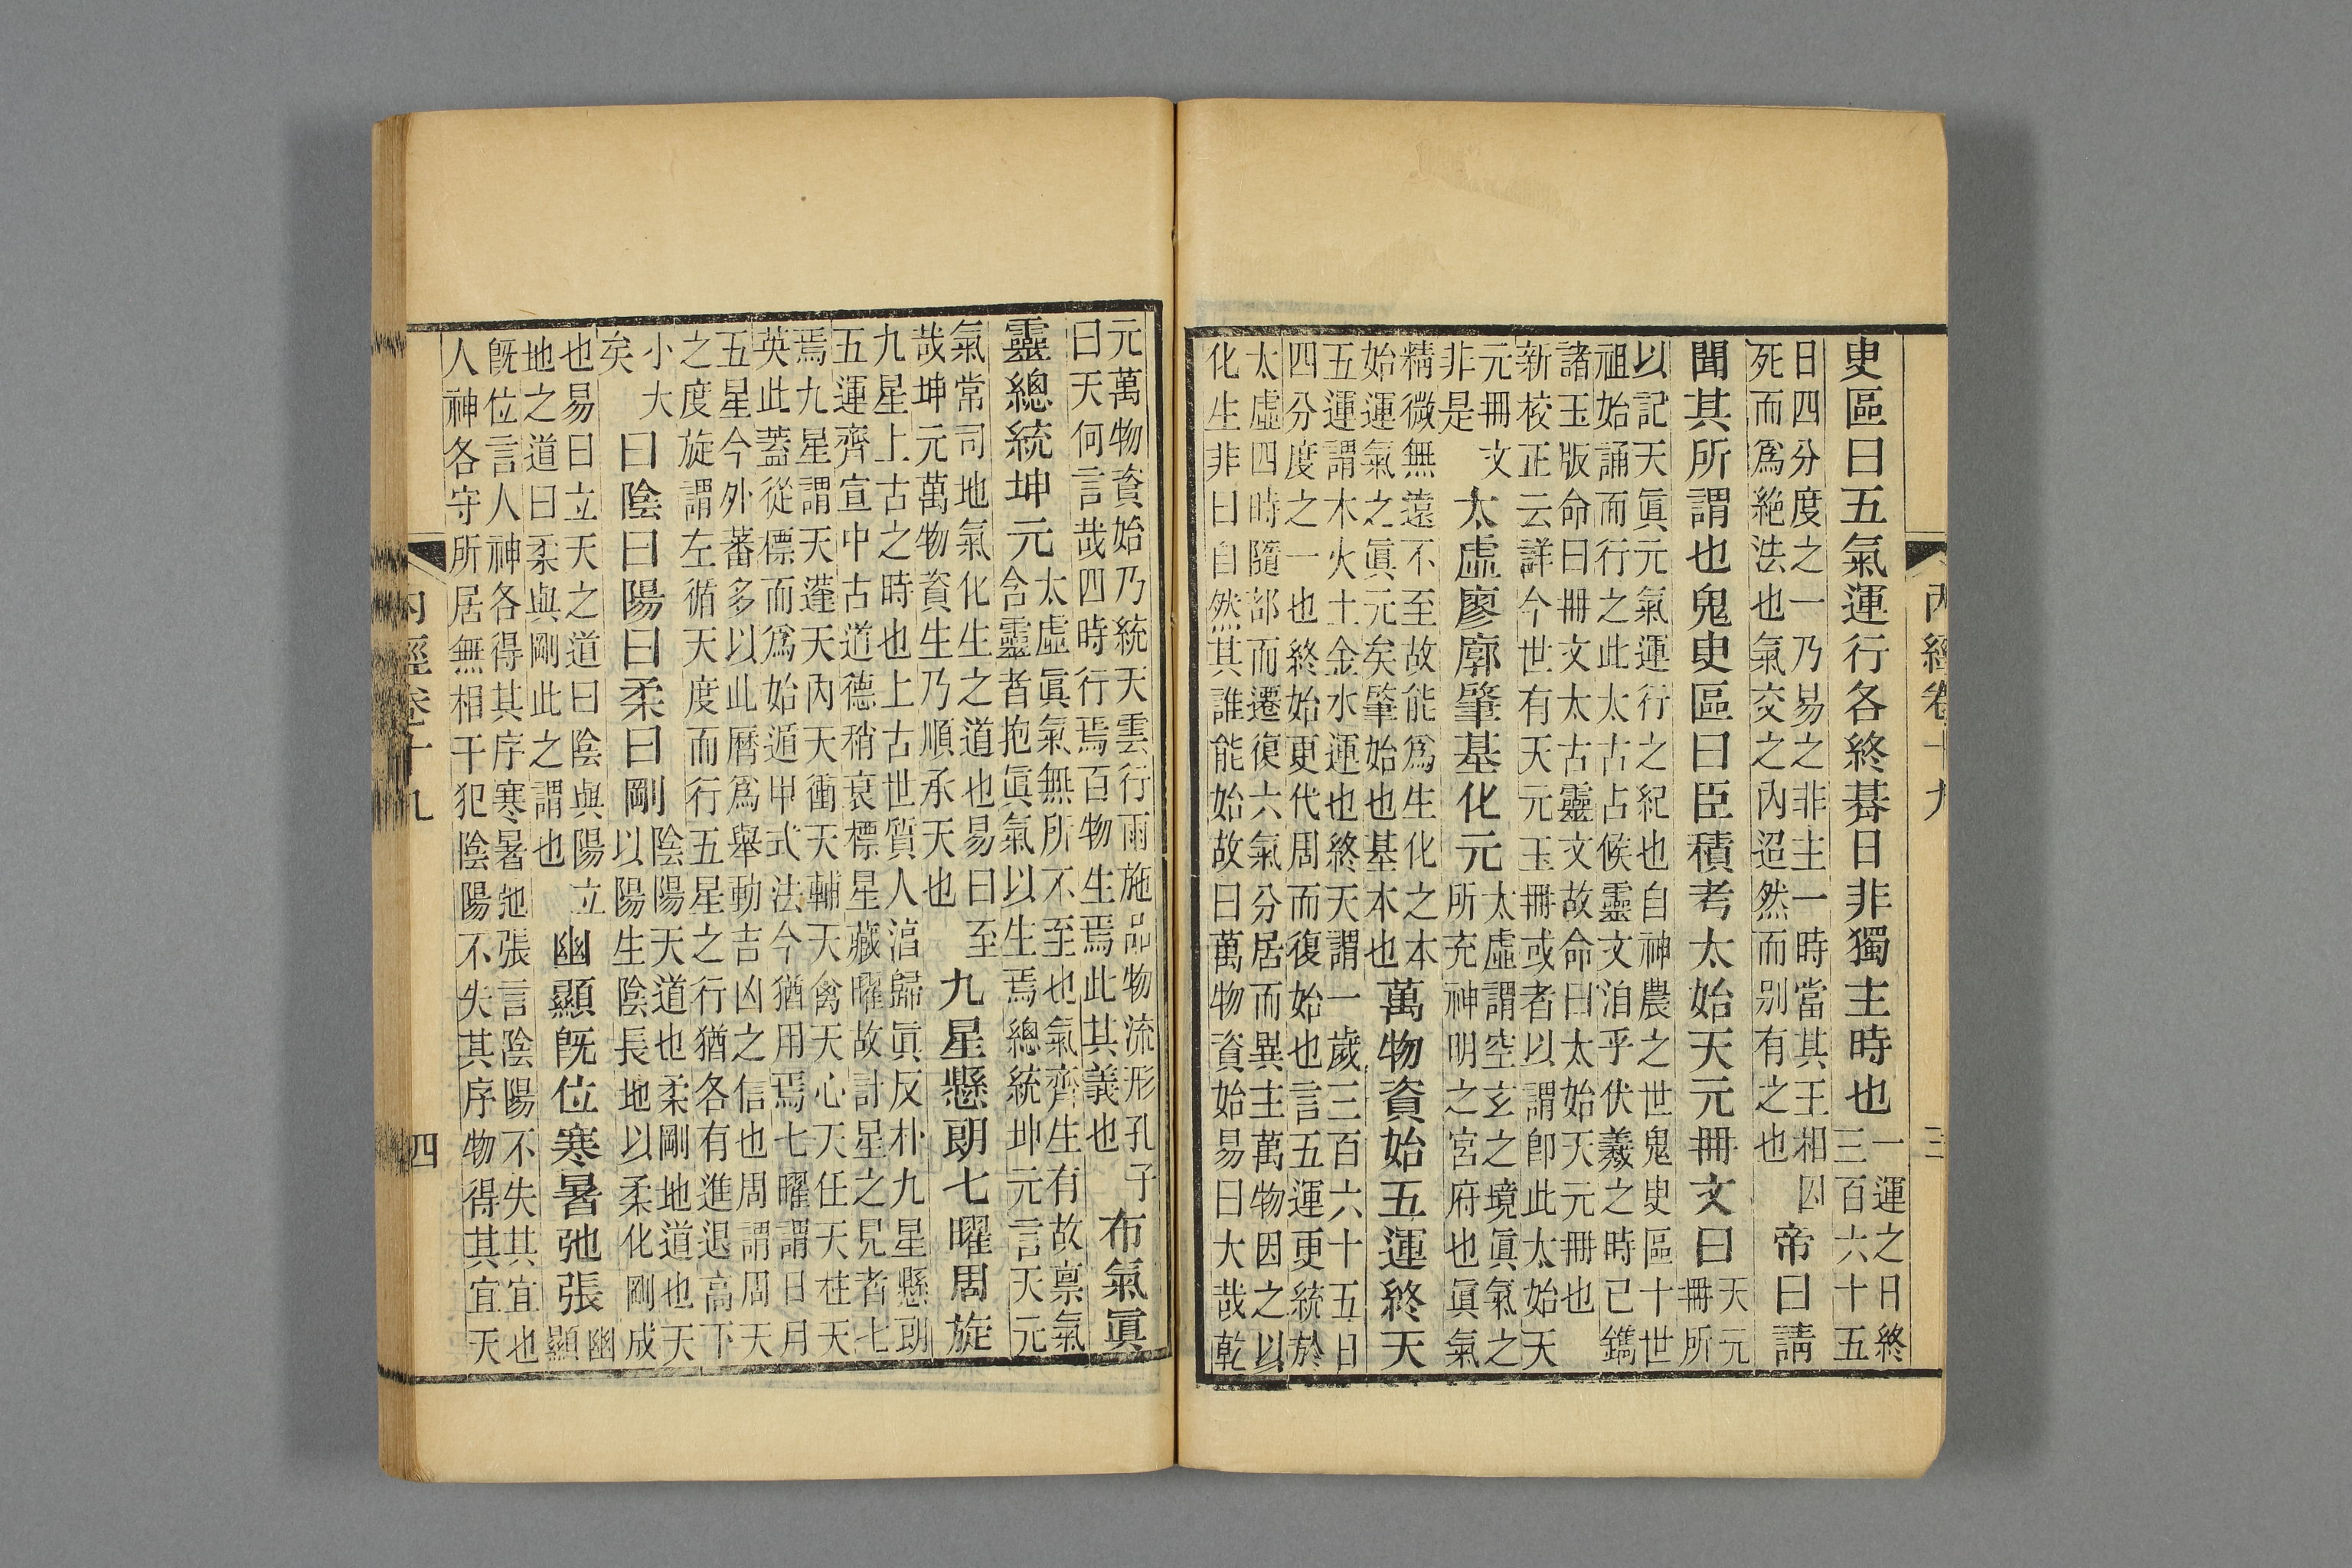 内經卷十九 三
臾區曰五氣運行各終朞日非獨主時也
一運之日終
三百六十五
日四分度之一乃易之非主一時當其王相囚
死而爲絶法也氣交之内迢然而别有之也
帝曰請
聞其所謂也鬼臾區曰臣積考太始天元冊文曰
天元
冊所
以記天眞元氣運行之紀也自神農之世鬼臾區十世
祖始誦而行之此太古占候靈文洎乎伏羲之時已鐫
諸玉版命曰冊文太古靈文故命曰太始天元冊也
新校正云詳今世有天元玉冊或者以謂卽此太始天
元冊文
非是
太虛廖廓肇基化元
太虛謂空玄之境眞氣之
所充神明之宮府也眞氣
精微無遠不至故能爲生化之本
始運氣之眞元矣肇始也基本也
萬物資始五運終天
五運謂木火土金水運也終天謂一歲三百六十五日
四分度之一也終始更代周而復始也言五運更統於
太虛四時隨部而遷復六氣分居而異主萬物因之以
化生非曰自然其誰能始故曰萬物資始易曰大哉乾
元萬物資始乃統天雲行雨施品物流形孔子
曰天何言哉四時行焉百物生焉此其義也
布氣眞
靈總統坤元
太虛眞氣無所不至也氣齊生有故禀氣
含靈者抱眞氣以生焉總統坤元言天元
氣常司地氣化生之道也易曰至
哉坤元萬物資生乃順承天也
九星懸朗七曜周旋
九星上古之時也上古世質人淳歸眞反朴九星懸朗
五運齊宣中古道德稍衰標星藏曜故計星之見者七
焉九星謂天蓬天内天衝天輔天禽天心天任天柱天
英此蓋從標而爲始遁甲式法今猶用焉七曜謂日月
五星今外蕃多以此曆爲舉動吉凶之信也周謂周天
之度旋謂左循天度而行五星之行猶各有進退高下
小大
矣
曰陰曰陽曰柔曰剛
陰陽天道也柔剛地道也天
以陽生陰長地以柔化剛成
也易曰立天之道曰陰與陽立
地之道曰柔與剛此之謂也
幽顯旣位寒暑弛張
幽
顯
旣位言人神各得其序寒暑弛張言陰陽不失其宜也
人神各守所居無相干犯陰陽不失其序物得其宜天
内經卷十九 四